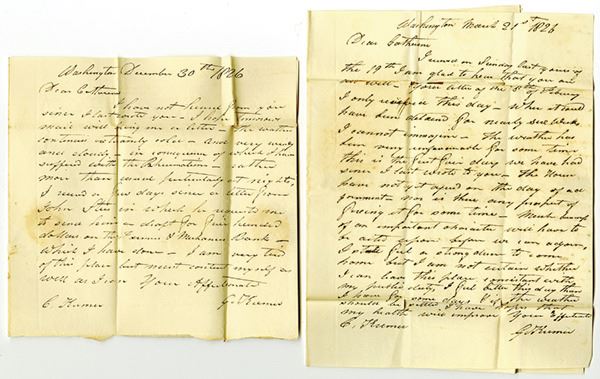 Washington December 30th 1826
Dear Catherine
I have not heard from you
since I last wrote you - I hope tomorrows
mail will bring me a letter - the weather
continues extremely cold - and very windy
and cloudy - in consequence of which I have
suffered with the Rheumatism - rather
more than usual particularly at nights,
I received a few days since a letter from
John in which he requests me
to send him a draft for five hundred
dollars on the Farmers & Mechanics Bank -
which I have done - I am very tired
of this place but must content myself as
well as I can Your Affectionate
C. Kremer
G Kremer
Washington March 21st 1826
Dear Catherine
I received on Sunday last yours of
the 19th I am glad to hear that you are
all well - Your letter of the 8th
I only received this day - where it could
have been detained for nearly six weeks
I cannot immagin - the weather has
been very unfavourable for some time
this is the first fair day we have had
since I last wrote to you - the House
have not yet agreed on the day of ad
journment nor is there any prospect of
fixing it for some time - Much business
of an important character will have to
be acted upon before we can adjourn,
I feel a strong desire to come
home but I am not certain whether
I can leave this place consistent with
my public duty, I feel better this day than
I have for some days & if the weather
should be settled I have hopes that
my health will improve Your Affectionate
C. Kremer
G Kremer